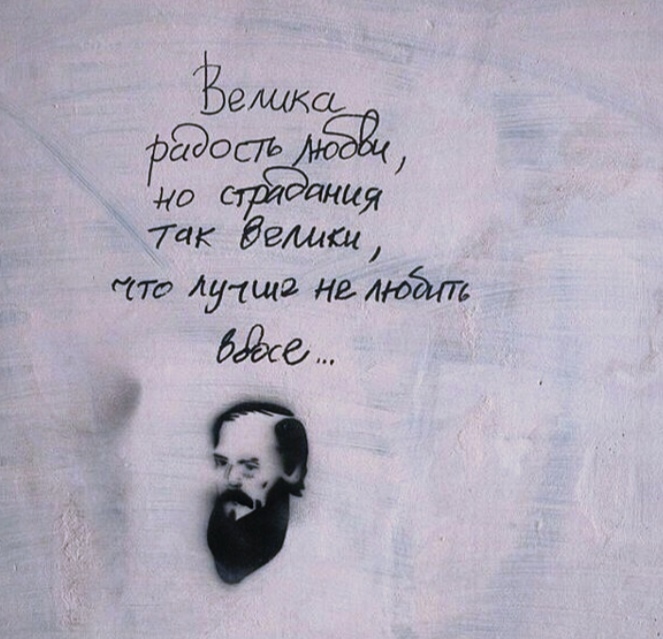 Велика
радость любви,
но страдания
так велики,
что лучше не любить
вовсе...